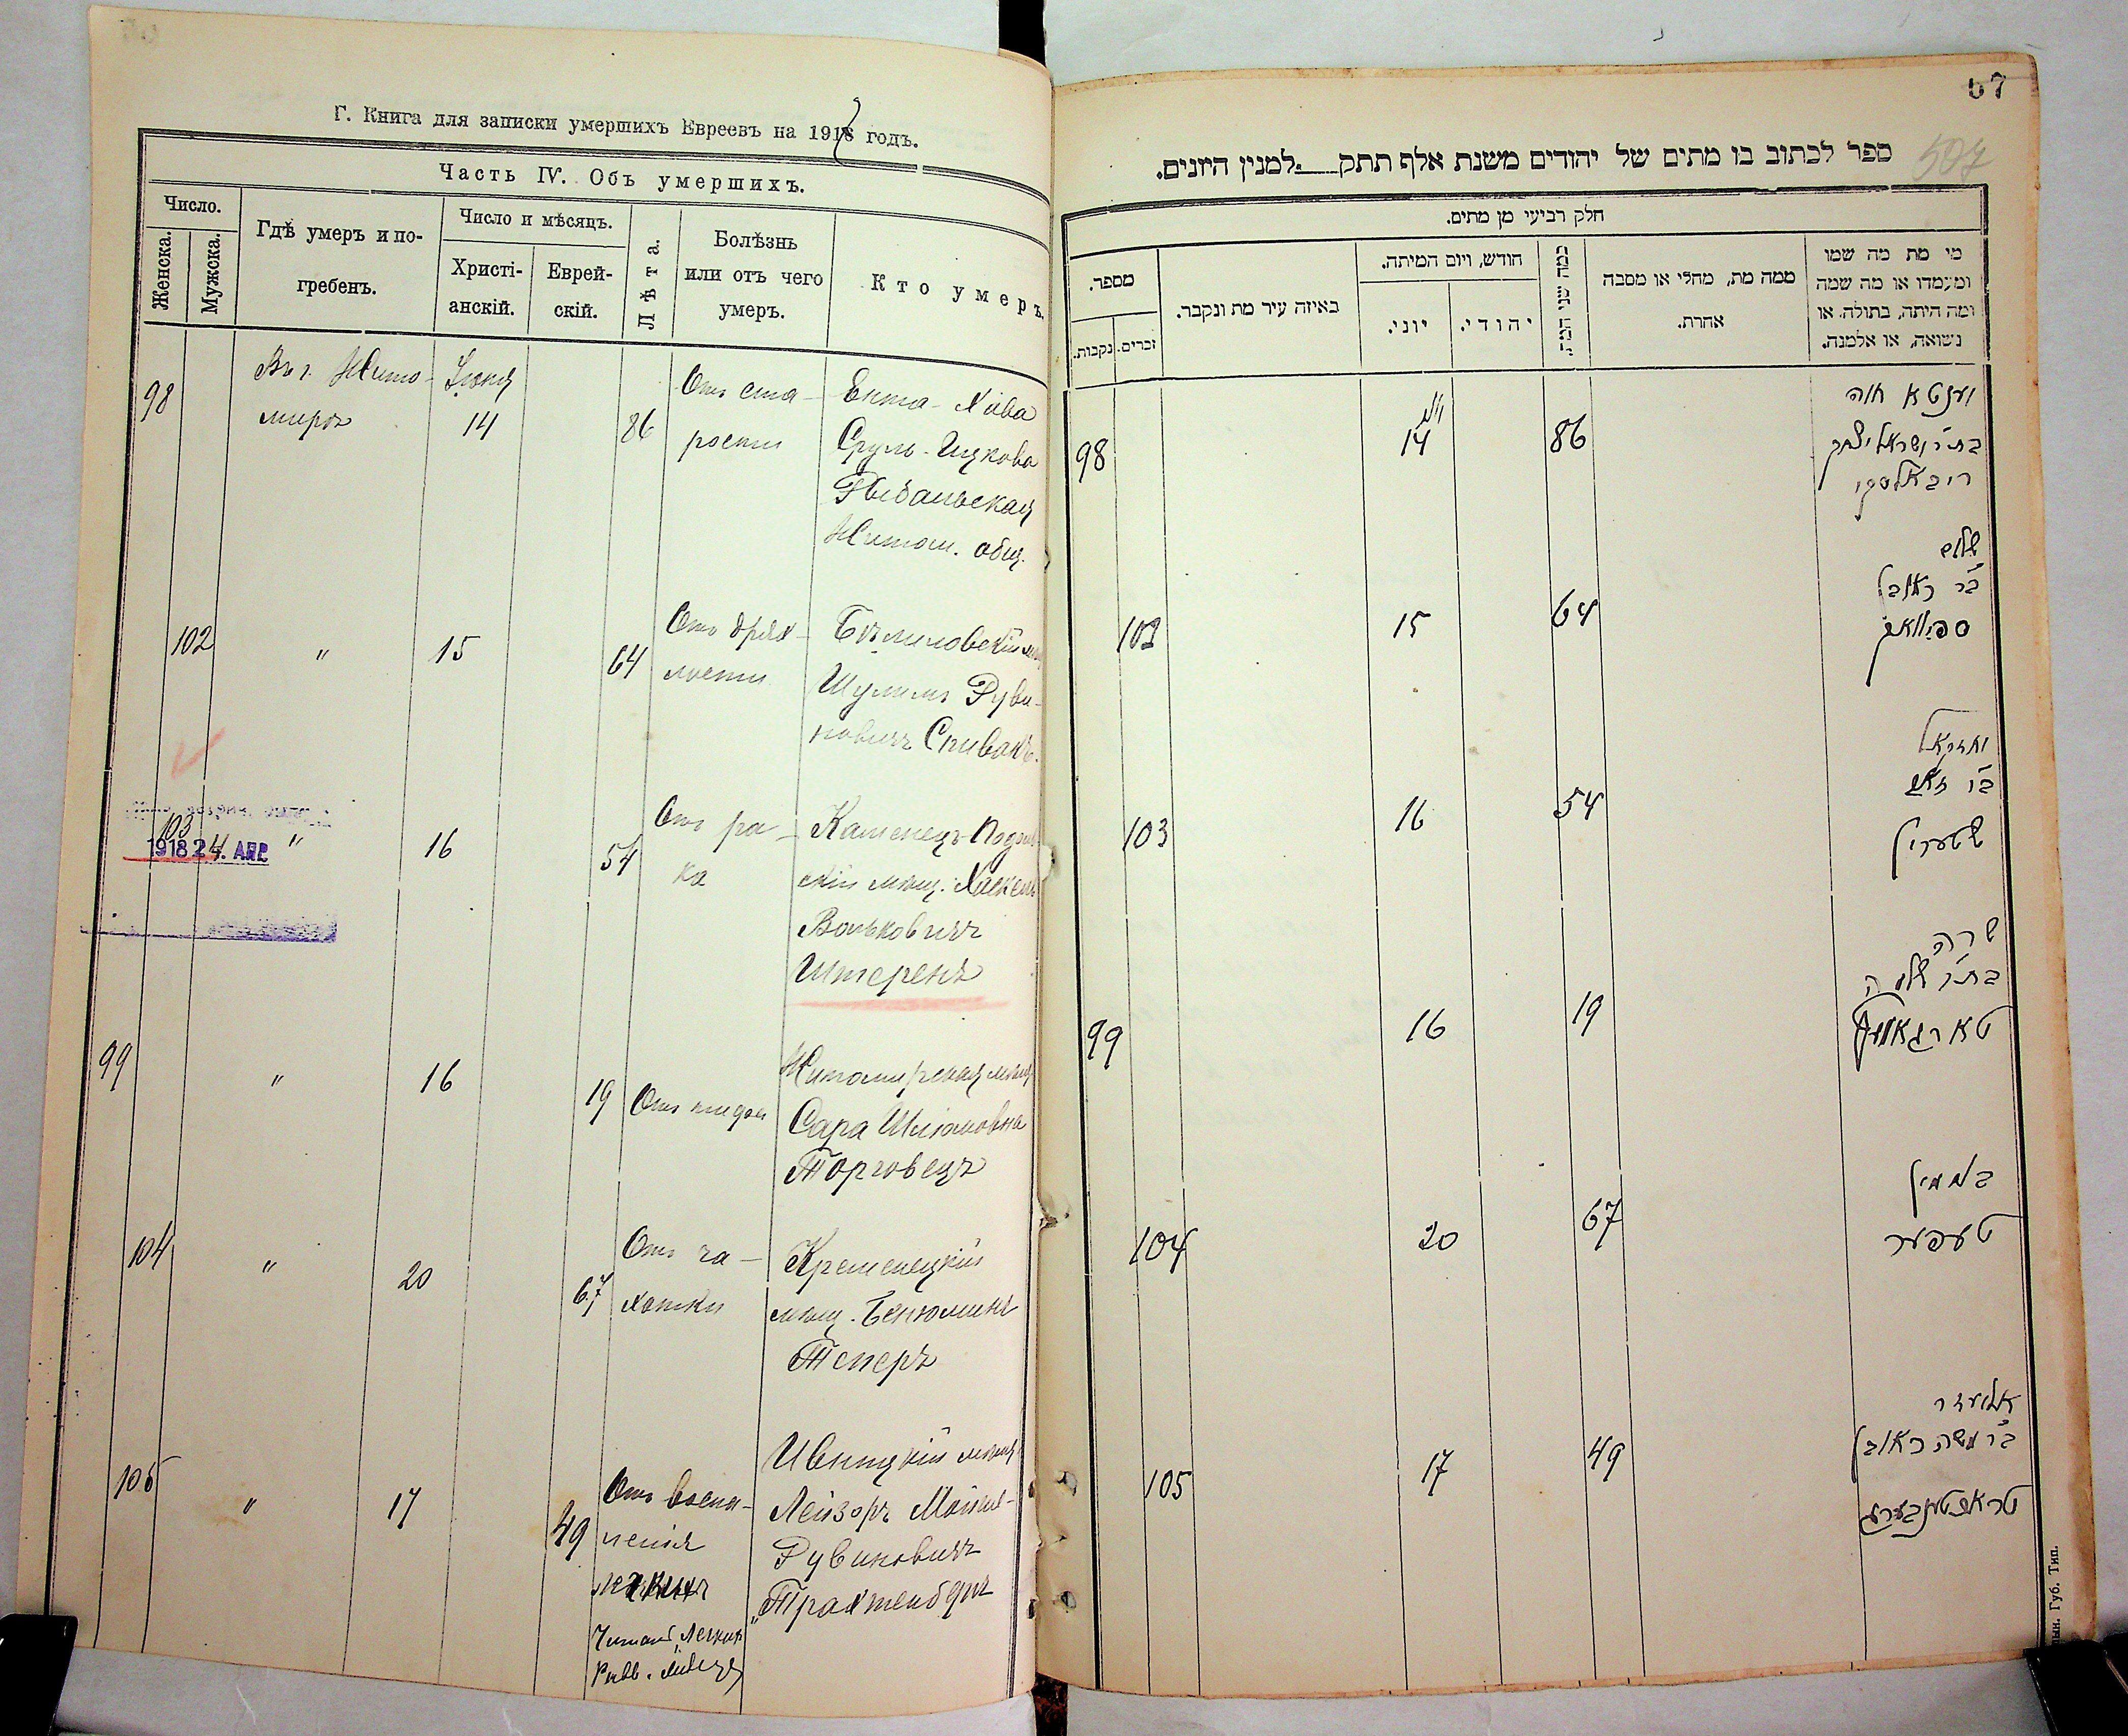 Г. Книга для записки умершихъ Евреевъ на 1918 годъ.
Часть IV. Объ умершихъ.
Число.
Женска.
Мужска.
Гдѣ умеръ и по-
гребенъ.
Число и мѣсяцъ.
Христі-
анскій.
Еврей-
скій.
Лѣта.
Болѣзнь
или отъ чего
умеръ.
Кто умеръ.
98
Въ г. Жито-
мирѣ
Іюня
14
86
Отъ ста-
рости
Ента-Хава
Сруль-Ицкова
Рыбальская
Житом. общ.
102
"
15
64
Отъ дрях-
лости
Шулимъ Руви-
новичъ Спивакъ.
103
1918 24. АПР.
"
16
54
Отъ ра-
ка
Каменецъ-Подоль-
скій мѣщ. Хаскель
Вольковичъ
Штеренъ
99
"
16
19
Отъ
Житомирская мѣщ.
Сара Шлiомовна
Торговецъ
104
"
20
67
Отъ ча-
хотки
Кременецкій
мѣщ. Бенюминъ
Теперъ
105
"
17
49
Отъ воспа-
ленія
Ивницкій мѣщ.
Лейзоръ Мойше-
Рувиновичъ
Трахтенберъ
Читать „легкихъ
Равв.
67
507
ספר לכתוב בו מתים של יהודים משנת אלף תתק למנין היונים.
חלק רביעי מן מתים.
מספר.
נקבות.
זכרים.
באיזה עיר מת ונקבר.
חודש, ויום המיתה.
יוני.
יהודי.
כמה שני המת.
ממה מת, מחלי או מסבה
אחרת.
מי מת מה שמו
ומעמדו או מה שמה
ומה היתה, בתולה או
נשואה, או אלמנה.
98
14
86
יענטא חוה
בת ר' ישראל יצחק
ריבאלסקי
102
15
64
שלום
ב"ר ראובן
ספיוואק
103
16
54
יחזקאל
ב"ר זאב
שטערין
99
16
19
שרה
בת ר' שלמה
טארגאוועץ
104
20
67
בנימין
טעפער
105
17
49
אליעזר
ב"ר משה ראובן
טראכטענבערג
ын. Губ. Тип.